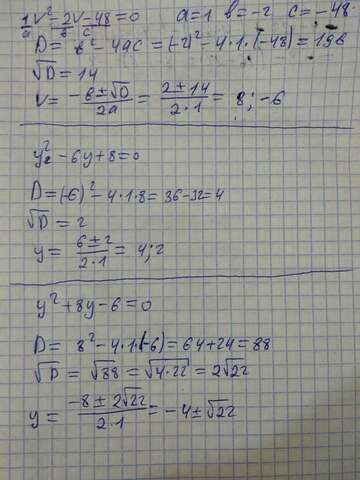 1v² - 2v - 48 = 0   a=1  b=-2  c=-48
a  b  c
D = b² - 4ac = (-2)² - 4·1·(-48) = 196
√D = 14
v = (-b±√D)/2a = (2±14)/(2·1) = 8; -6
y² - 6y + 8 = 0
D = (-6)² - 4·1·8 = 36 - 32 = 4
√D = 2
y = (6±2)/(2·1) = 4; 2
y² + 8y - 6 = 0
D = 8² - 4·1·(-6) = 64 + 24 = 88
√D = √88 = √4·22 = 2√22
y = (-8 ± 2√22)/(2·1) = -4 ± √22